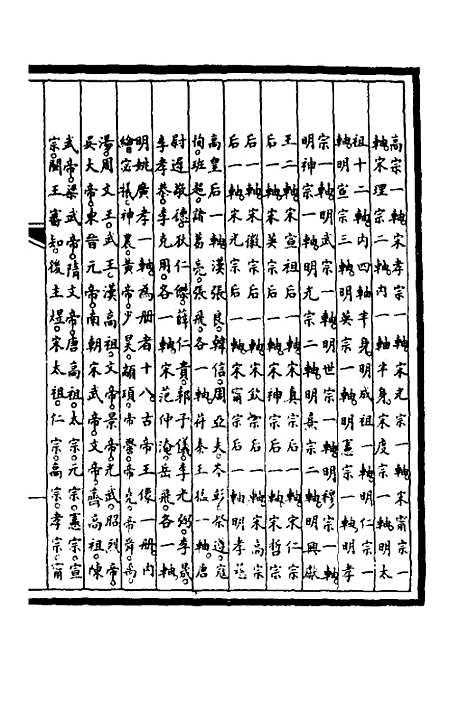 高宗一軸宋孝宗一軸宋光宗一軸宋甯宗一
軸宋理宗二軸內一軸半身宋度宗一軸明太
祖十二軸內四軸半身明成祖一軸明仁宗一
軸明宣宗三軸明英宗一軸明憲宗一軸明孝
宗一軸明武宗一軸明世宗一軸明穆宗一軸
明神宗一軸明光宗二軸明熹宗二軸明興獻
王二軸宋宣祖后一軸宋真宗后一軸宋仁宗
后一軸宋英宗后一軸宋神宗后一軸宋哲宗
后一軸宋徽宗后一軸宋欽宗后一軸宋高宗
后一軸宋光宗后一軸宋甯宗后一軸明孝慈
高皇后一軸漢張良韓信周亞夫岑彭祭遵寇
恂班超諸葛亮張飛各一軸苻秦王猛一軸唐
尉遲敬德狄仁傑薛仁貴郭子儀李光弼李晟
李孝恭李克用各一軸宋范仲淹岳飛各一軸
明姚廣孝一軸為冊者十八古帝王像一冊內
繪宓犧神農黃帝少昊顓頊帝嚳帝堯帝舜禹
湯周文王武王漢高祖文帝景帝光武昭烈帝
吳大帝東晉元帝南朝宋武帝文帝齊高祖陳
武帝梁武帝隋文帝唐高祖太宗元宗憲宗宣
宗閩王審知後主煜宋太祖仁宗高宗孝宗甯